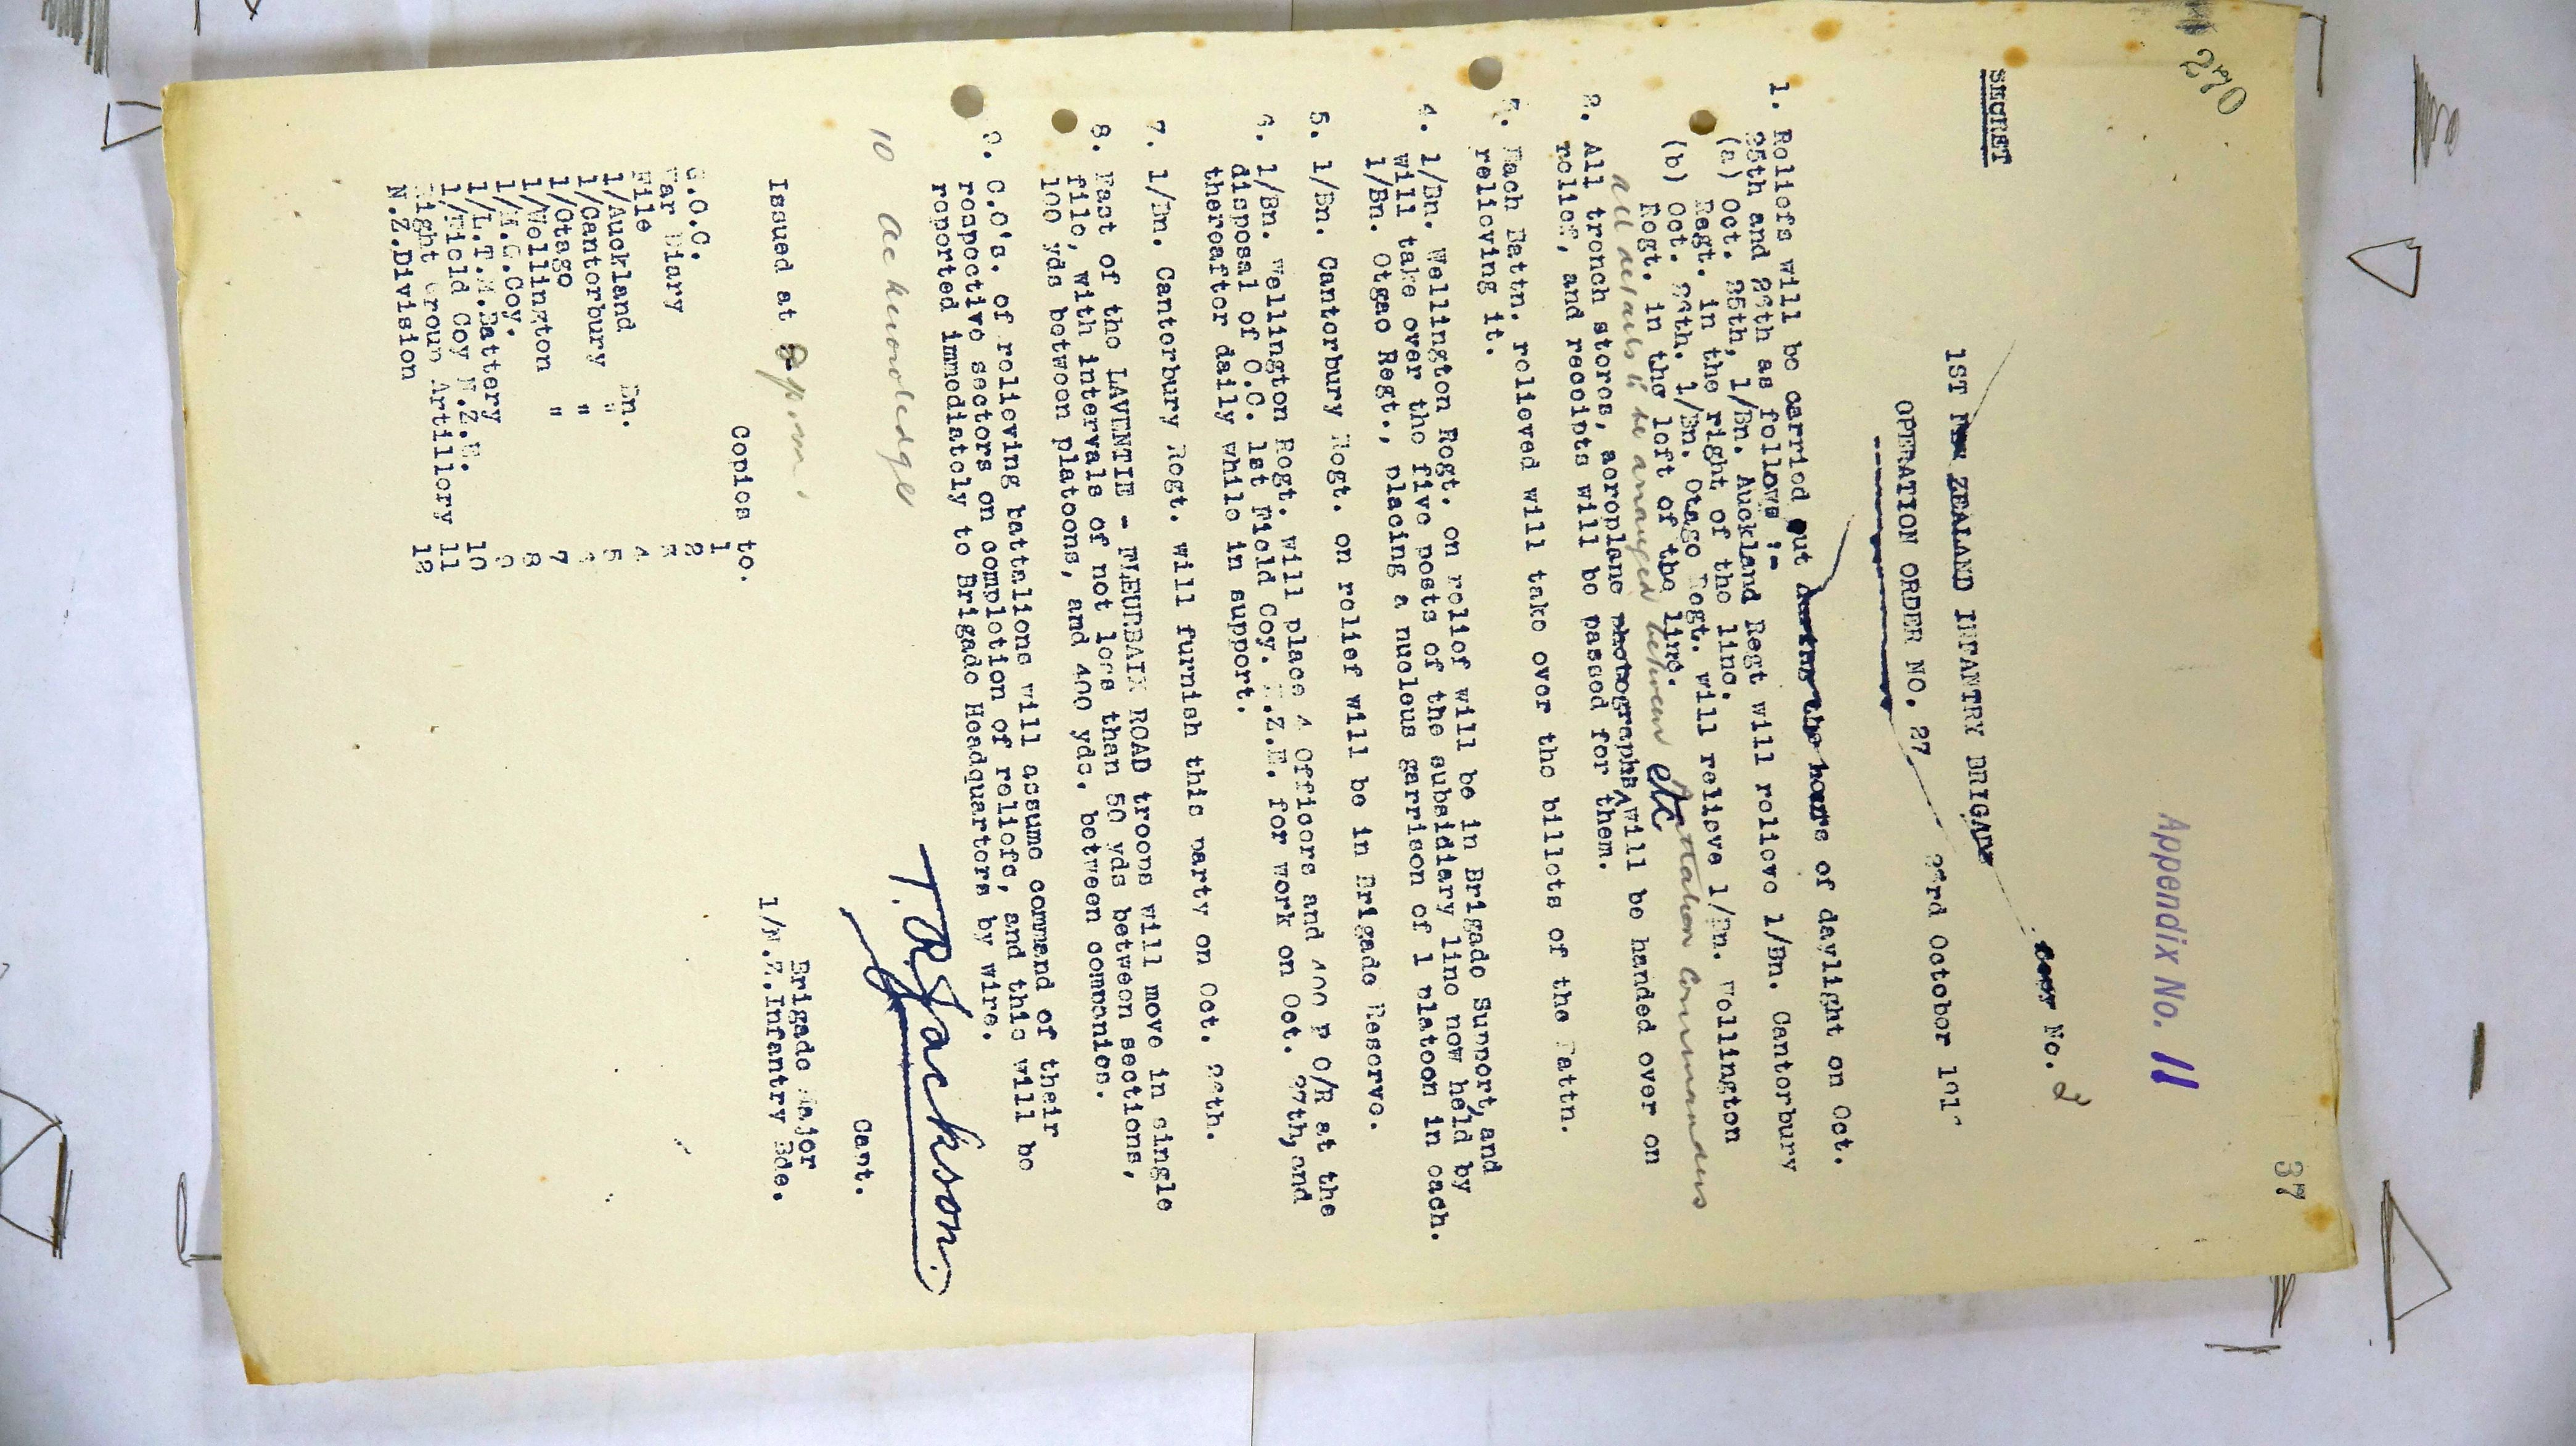 37
270
Appendix No. 11
SECRET
Copy No. 2
1ST NEW ZEALAND INFANTRY BRIGADE
OPERATION ORDER NO. 27
23rd October 191
1. Reliefs will be carried out during the hours of daylight on Oct.
25th and 26th as follows :-
(a) Oct. 25th, 1/Bn. Auckland Regt will relieve 1/Bn. Canterbury
Regt. in the right of the line.
(b) Oct. 26th. 1/Bn. Otago Regt. will relieve 1/Bn. Wellington
Regt. in the left of the line.
all details to be arranged between battalion commanders
2. All trench stores, aeroplane photographs etc will be handed over on
relief, and receipts will be passed for them.
3. Each Battn. relieved will take over the billets of the Battn.
relieving it.
4. 1/Bn. Wellington Regt. on relief will be in Brigade Support, and
will take over the five posts of the subsidiary line now held by
1/Bn. Otgao Regt., placing a nucleus garrison of 1 platoon in each.
5. 1/Bn. Canterbury Regt. on relief will be in Brigade Reserve.
6. 1/Bn. Wellington Regt. will place 4 Officers and 400 O/R at the
disposal of O.C. 1st Field Coy. N.Z.E. for work on Oct. 27th, and
thereafter daily while in support.
7. 1/Bn. Canterbury Regt. will furnish this party on Oct. 26th.
8. East of the LAVENTIE - FLEURBAIX ROAD troops will move in single
file, with intervals of not less than 50 yds between sections,
100 yds between platoons, and 400 yds. between companies.
9. C.O's. of relieving battalions will assume command of their
respective sectors on completion of reliefs, and this will be
reported immediately to Brigade Headquarters by wire.
10 Acknowledge
T.R. Jackson.
Capt.
Brigade Major
1/N.Z.Infantry Bde.
Issued at 8 p.m.
Copies to.
G.O.C. 1
War Diary 2
File 3
1/Auckland Bn. 4
1/Canterbury " 5
1/Otago " 6
1/Wellington " 7
1/M.G.Coy. 8
1/L.T.M.Battery 9
1/Field Coy N.Z.E. 10
Right Group Artillery 11
N.Z.Division 12